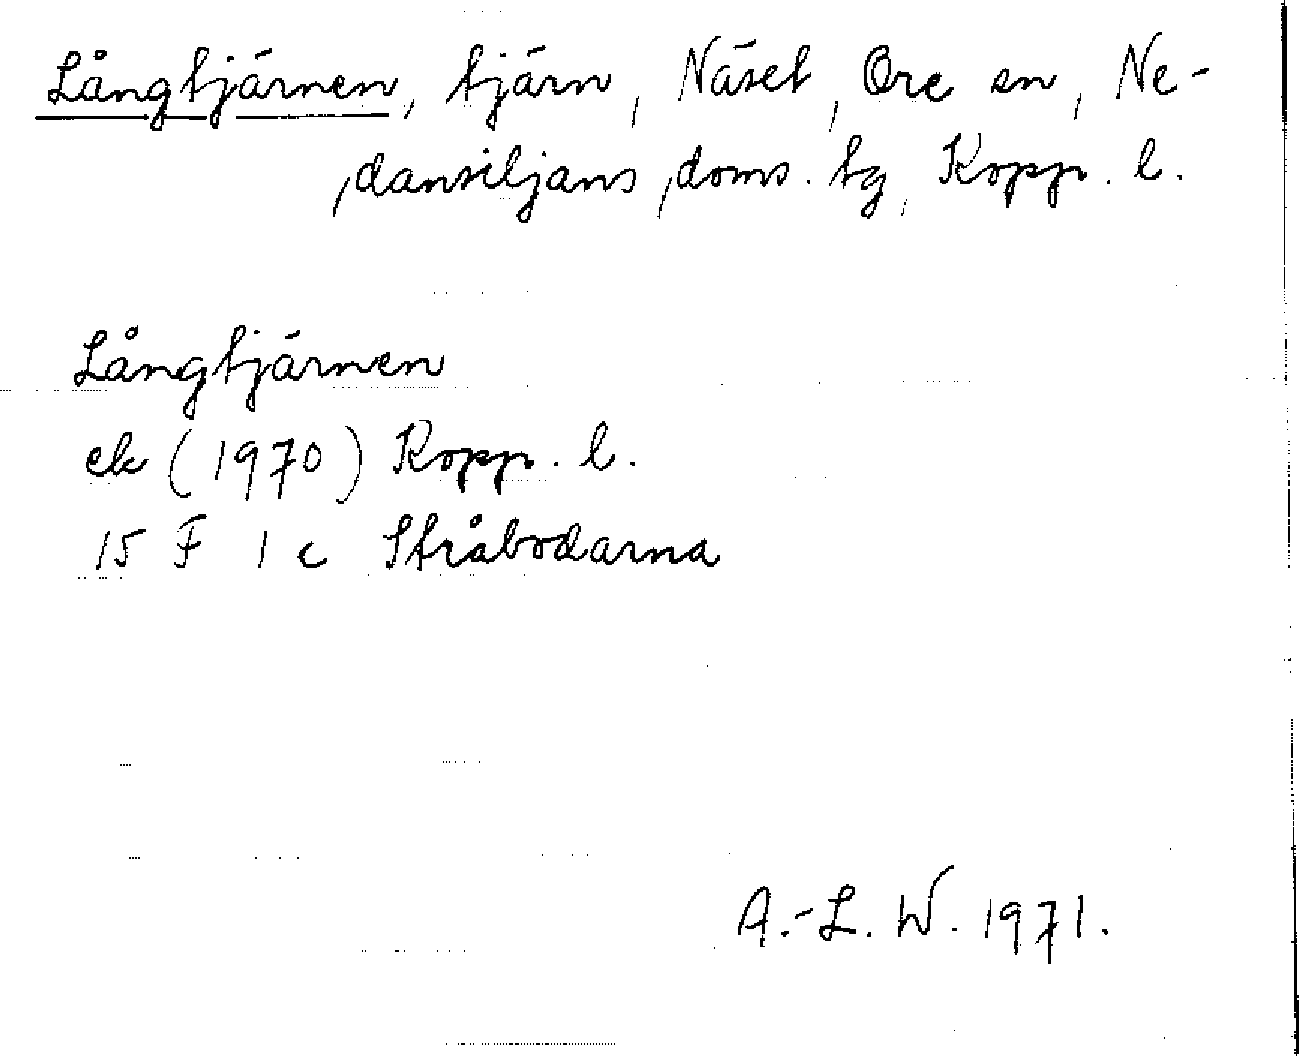 Långtjärnen, tjärn, Näset, Ore sn, Ne-
dansiljans doms. tg, Kopp. l.
Långtjärnen
ek (1970) Kopp. l.
15 F 1 c Stråbodarna
A.-L. W. 1971.